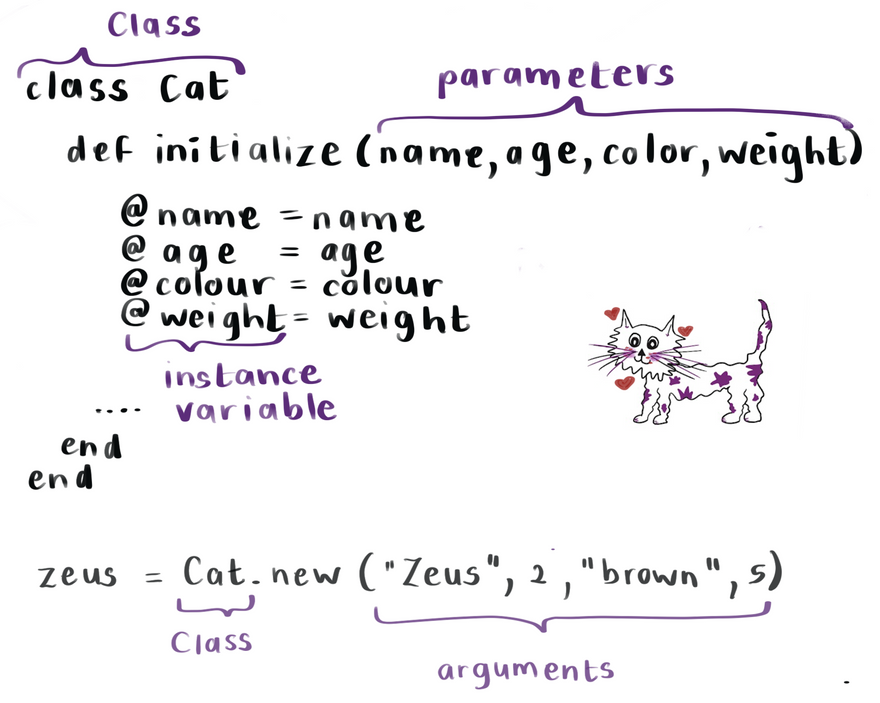 Class
class Cat
parameters
def initialize (name, age, color, weight)
@name = name
@ age = age
@colour = colour
@weight = weight
instance
.... variable
end
end
zeus = Cat.new ("Zeus", 2, "brown", 5)
Class
arguments